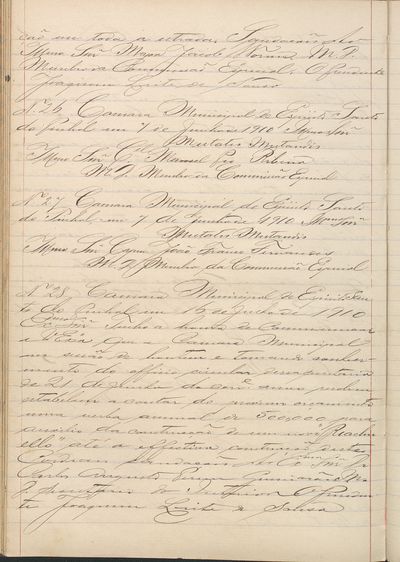 ção em toda a estrada. Saudações Ao
Illmo Snr Major Jacob M. D.
Membro da Commissão Especial. O Presidente
Joaquim Leite de Souza
Nº 26 Camara Municipal de Espirito Santo
do Pinhal em 7 de Junho de 1910 Illmo Snr
Mutatis Mutandis
Illmo Snr Cel. Manoel Pio Ribeiro
M. D. Membro da Commissão Especial
Nº 27 Camara Municipal de Espirito Santo
do Pinhal em 7 de Junho de 1910 Illmo Snr
Mutatis Mutandis
Illmo Snr Capm João Franco
M. D. Membro da Commissão Especial
Nº 28 Camara Municipal de Espirito San-
to do Pinhal em 15 de Julho de 1910
Exmo Snr Tenho a honra de communicar
a V. Exa que a Camara Municipal
em sessão de hontem e tomando conheci-
mento do officio circular dessa
de 21 de Junho do corre anno
a contar do proximo orçamento
uma verba annual de 500,000 para
auxilio da construcção de um novo "Riachu-
ello" até a effectiva construcção
saudações Ao Exmo Snr Dr
Carlos Augusto Pereira Guimarães M.
D. Secretario do Interior O Presiden-
te Joaquim Leite de Souza